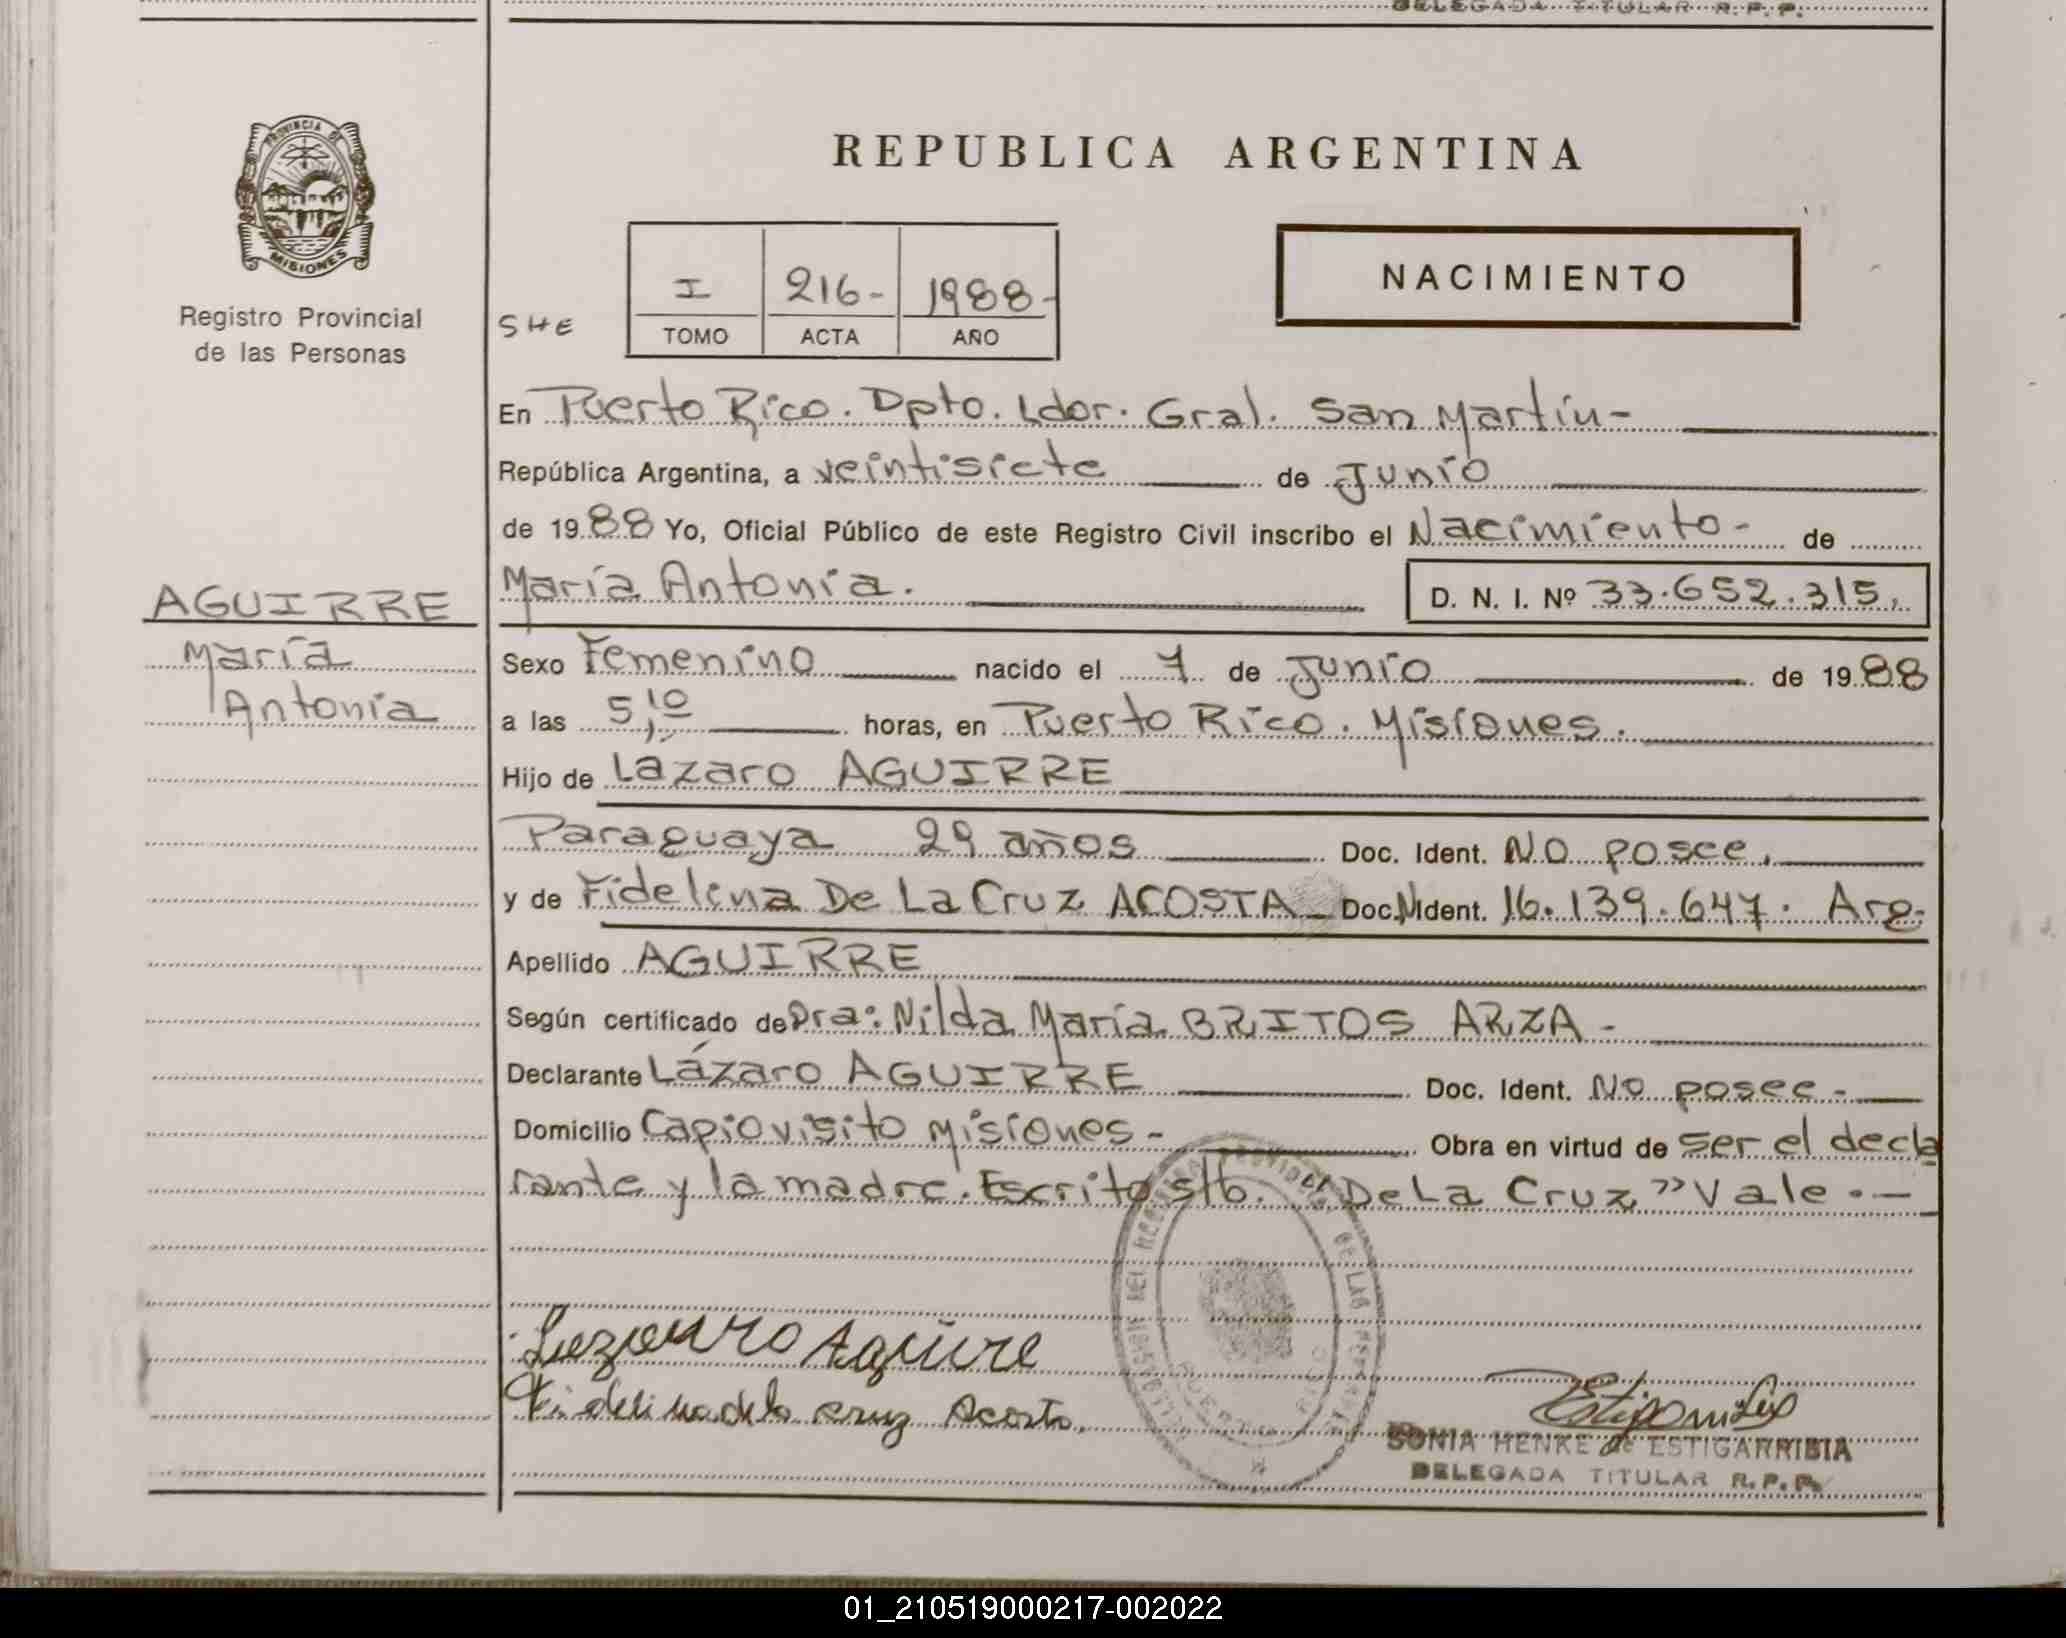 DELEGADA TITULAR R.P.P.
PROVINCIA DE
MISIONES
Registro Provincial
de las Personas
REPUBLICA ARGENTINA
NACIMIENTO
SHE
I 216- 1988-
TOMO ACTA AÑO
En Puerto Rico. Dpto. Ldor. Gral. San Martín-
República Argentina, a veintisiete de Junio
de 1988 Yo, Oficial Público de este Registro Civil inscribo el Nacimiento- de
María Antonia. D. N. I. Nº 33.652.315,
AGUIRRE
María
Antonia
Sexo Femenino nacido el 7 de Junio de 1988
a las 5,10 horas, en Puerto Rico. Misiones.
Hijo de Lázaro AGUIRRE
Paraguaya 29 años Doc. Ident. No posee.
y de Fidelina De La Cruz ACOSTA- Doc. Ident. 16.139.647. Arg.
Apellido AGUIRRE
Según certificado de Dra: Nilda María BRITOS ARZA-
Declarante Lázaro AGUIRRE Doc. Ident. No posee-
Domicilio Capiovisito Misiones- Obra en virtud de ser el decla
rante y la madre. Escrito s/b. "De La Cruz" Vale.-
Lazaro Aguirre
Fidelina de la cruz Acosta.
PUERTO RICO
SONIA HENKE de ESTIGARRIBIA
DELEGADA TITULAR R.P.P.
01_210519000217-002022